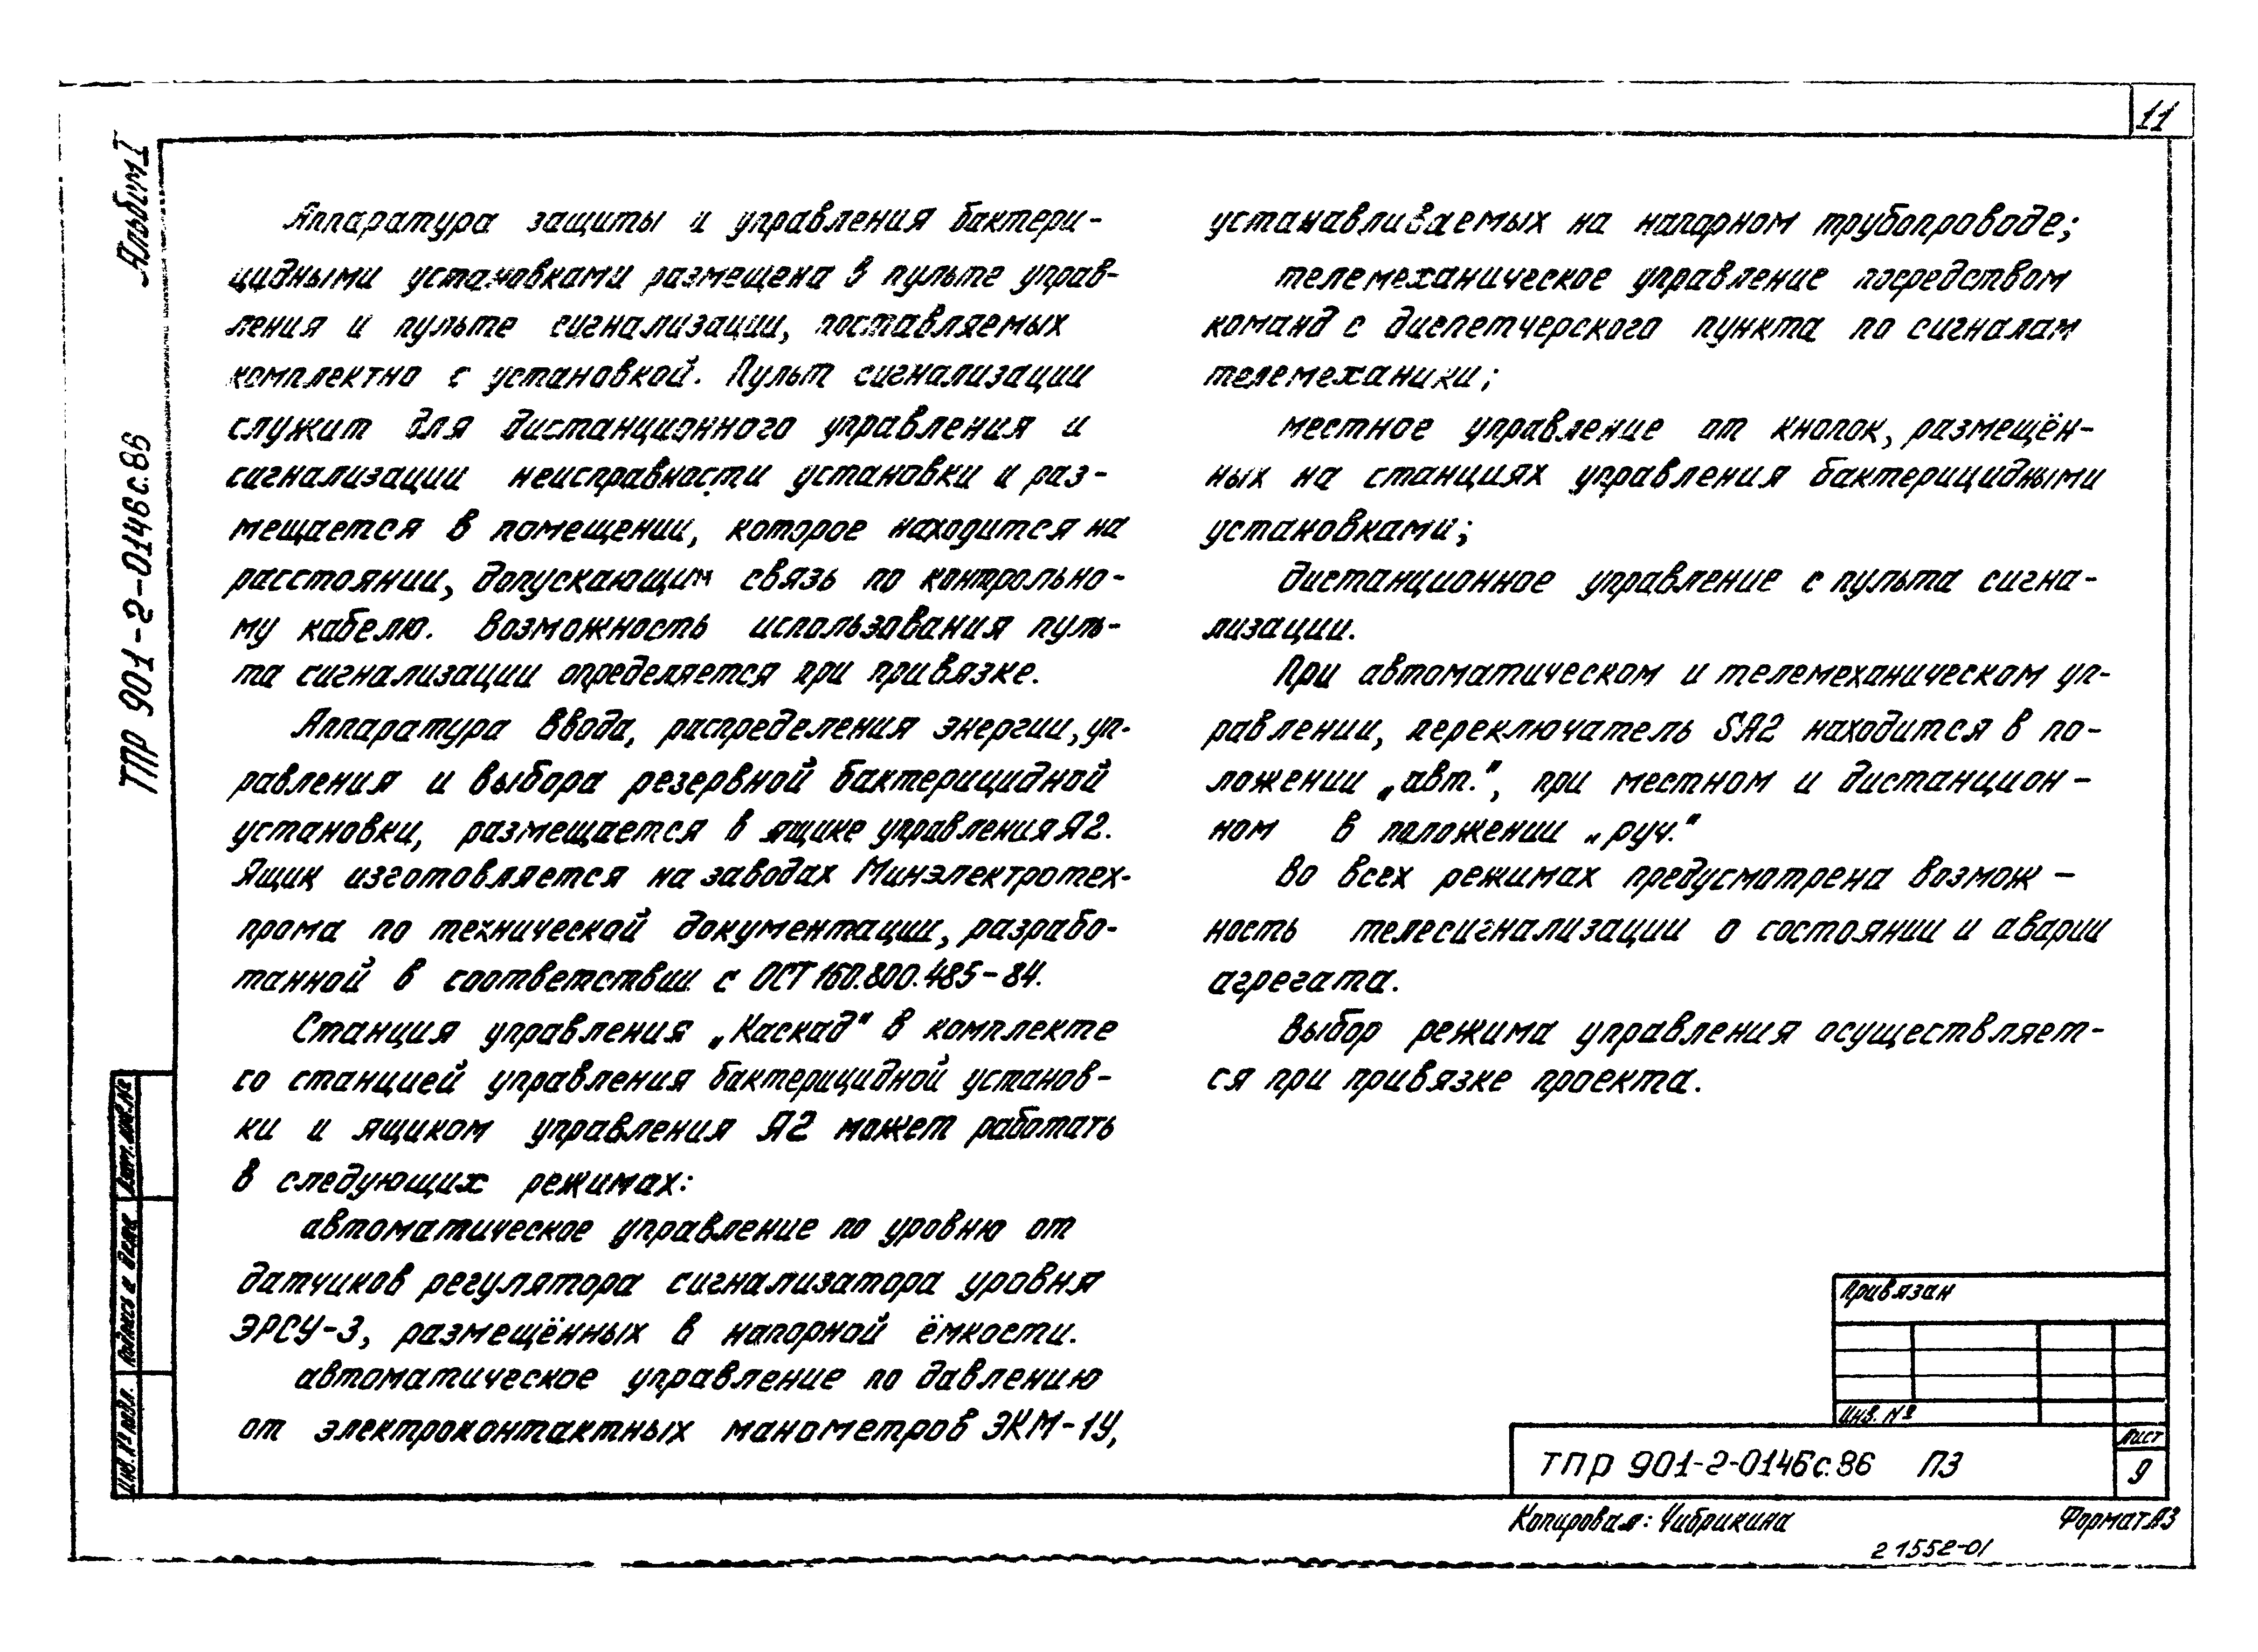 11
Альбом I
ТПР 901-2-0146с.86
Аппаратура защиты и управления бактери-
цидными установками размещена в пульте управ-
ления и пульте сигнализации, поставляемых
комплектно с установкой. Пульт сигнализации
служит для дистанционного управления и
сигнализации неисправности установки и раз-
мещается в помещении, которое находится на
расстоянии, допускающим связь по контрольно-
му кабелю. Возможность использования пуль-
та сигнализации определяется при привязке.
Аппаратура ввода, распределения энергии, уп-
равления и выбора резервной бактерицидной
установки, размещается в ящике управления Я2.
Ящик изготовляется на заводах Минэлектротех-
прома по технической документации, разрабо-
танной в соответствии с ОСТ 160.800.485-84.
Станция управления „Каскад" в комплекте
со станцией управления бактерицидной установ-
ки и ящиком управления Я2 может работать
в следующих режимах:
автоматическое управление по уровню от
датчиков регулятора сигнализатора уровня
ЭРСУ-3, размещённых в напорной ёмкости.
автоматическое управление по давлению
от электроконтактных манометров ЭКМ-1У,
устанавливаемых на напорном трубопроводе;
телемеханическое управление посредством
команд с диспетчерского пункта по сигналам
телемеханики;
местное управление от кнопок, размещён-
ных на станциях управления бактерицидными
установками;
дистанционное управление с пульта сигна-
лизации.
При автоматическом и телемеханическом уп-
равлении, переключатель SA2 находится в по-
ложении „авт.", при местном и дистанцион-
ном в положении „руч."
Во всех режимах предусмотрена возмож-
ность телесигнализации о состоянии и аварии
агрегата.
Выбор режима управления осуществляет-
ся при привязке проекта.
Взам. инв. №
Подпись и дата
Инв. № подл.
Привязан
Инв. №
ТПР 901-2-0146с.86 ПЗ
Лист
9
Копировал: Чибрикина
Формат А3
21552-01